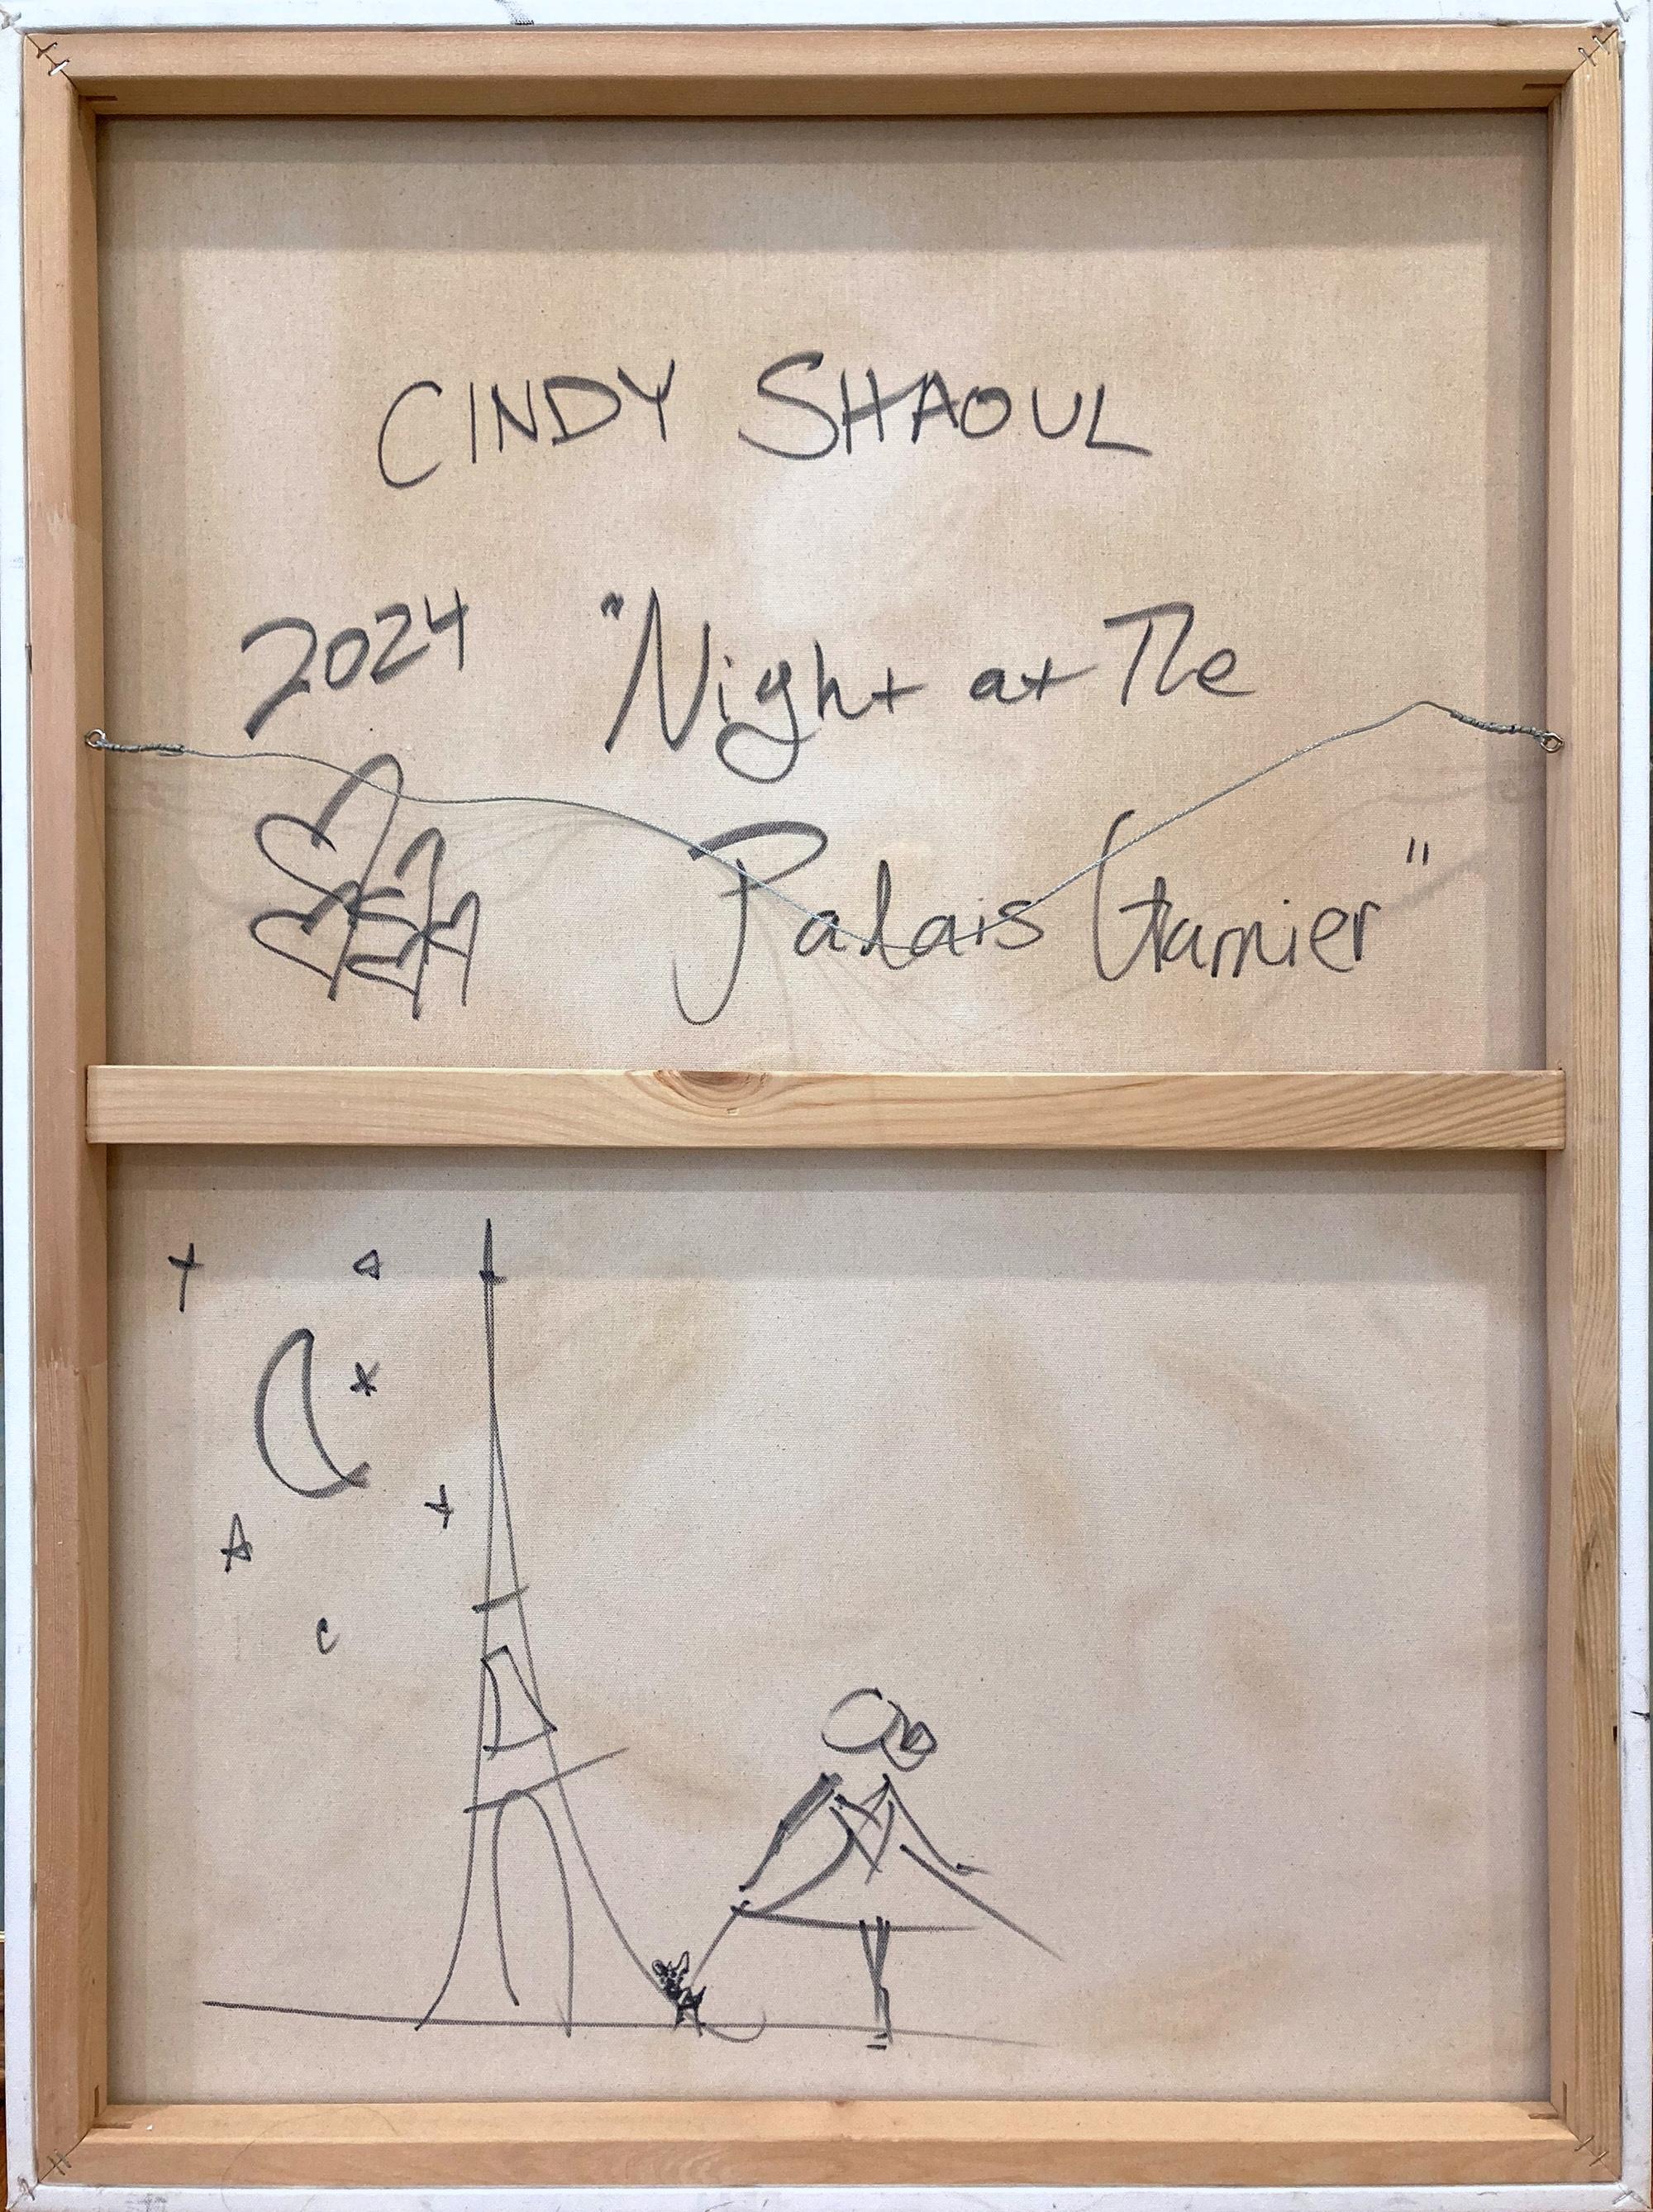 CINDY SHAOUL
2024 "Night at The
Palais Garnier"